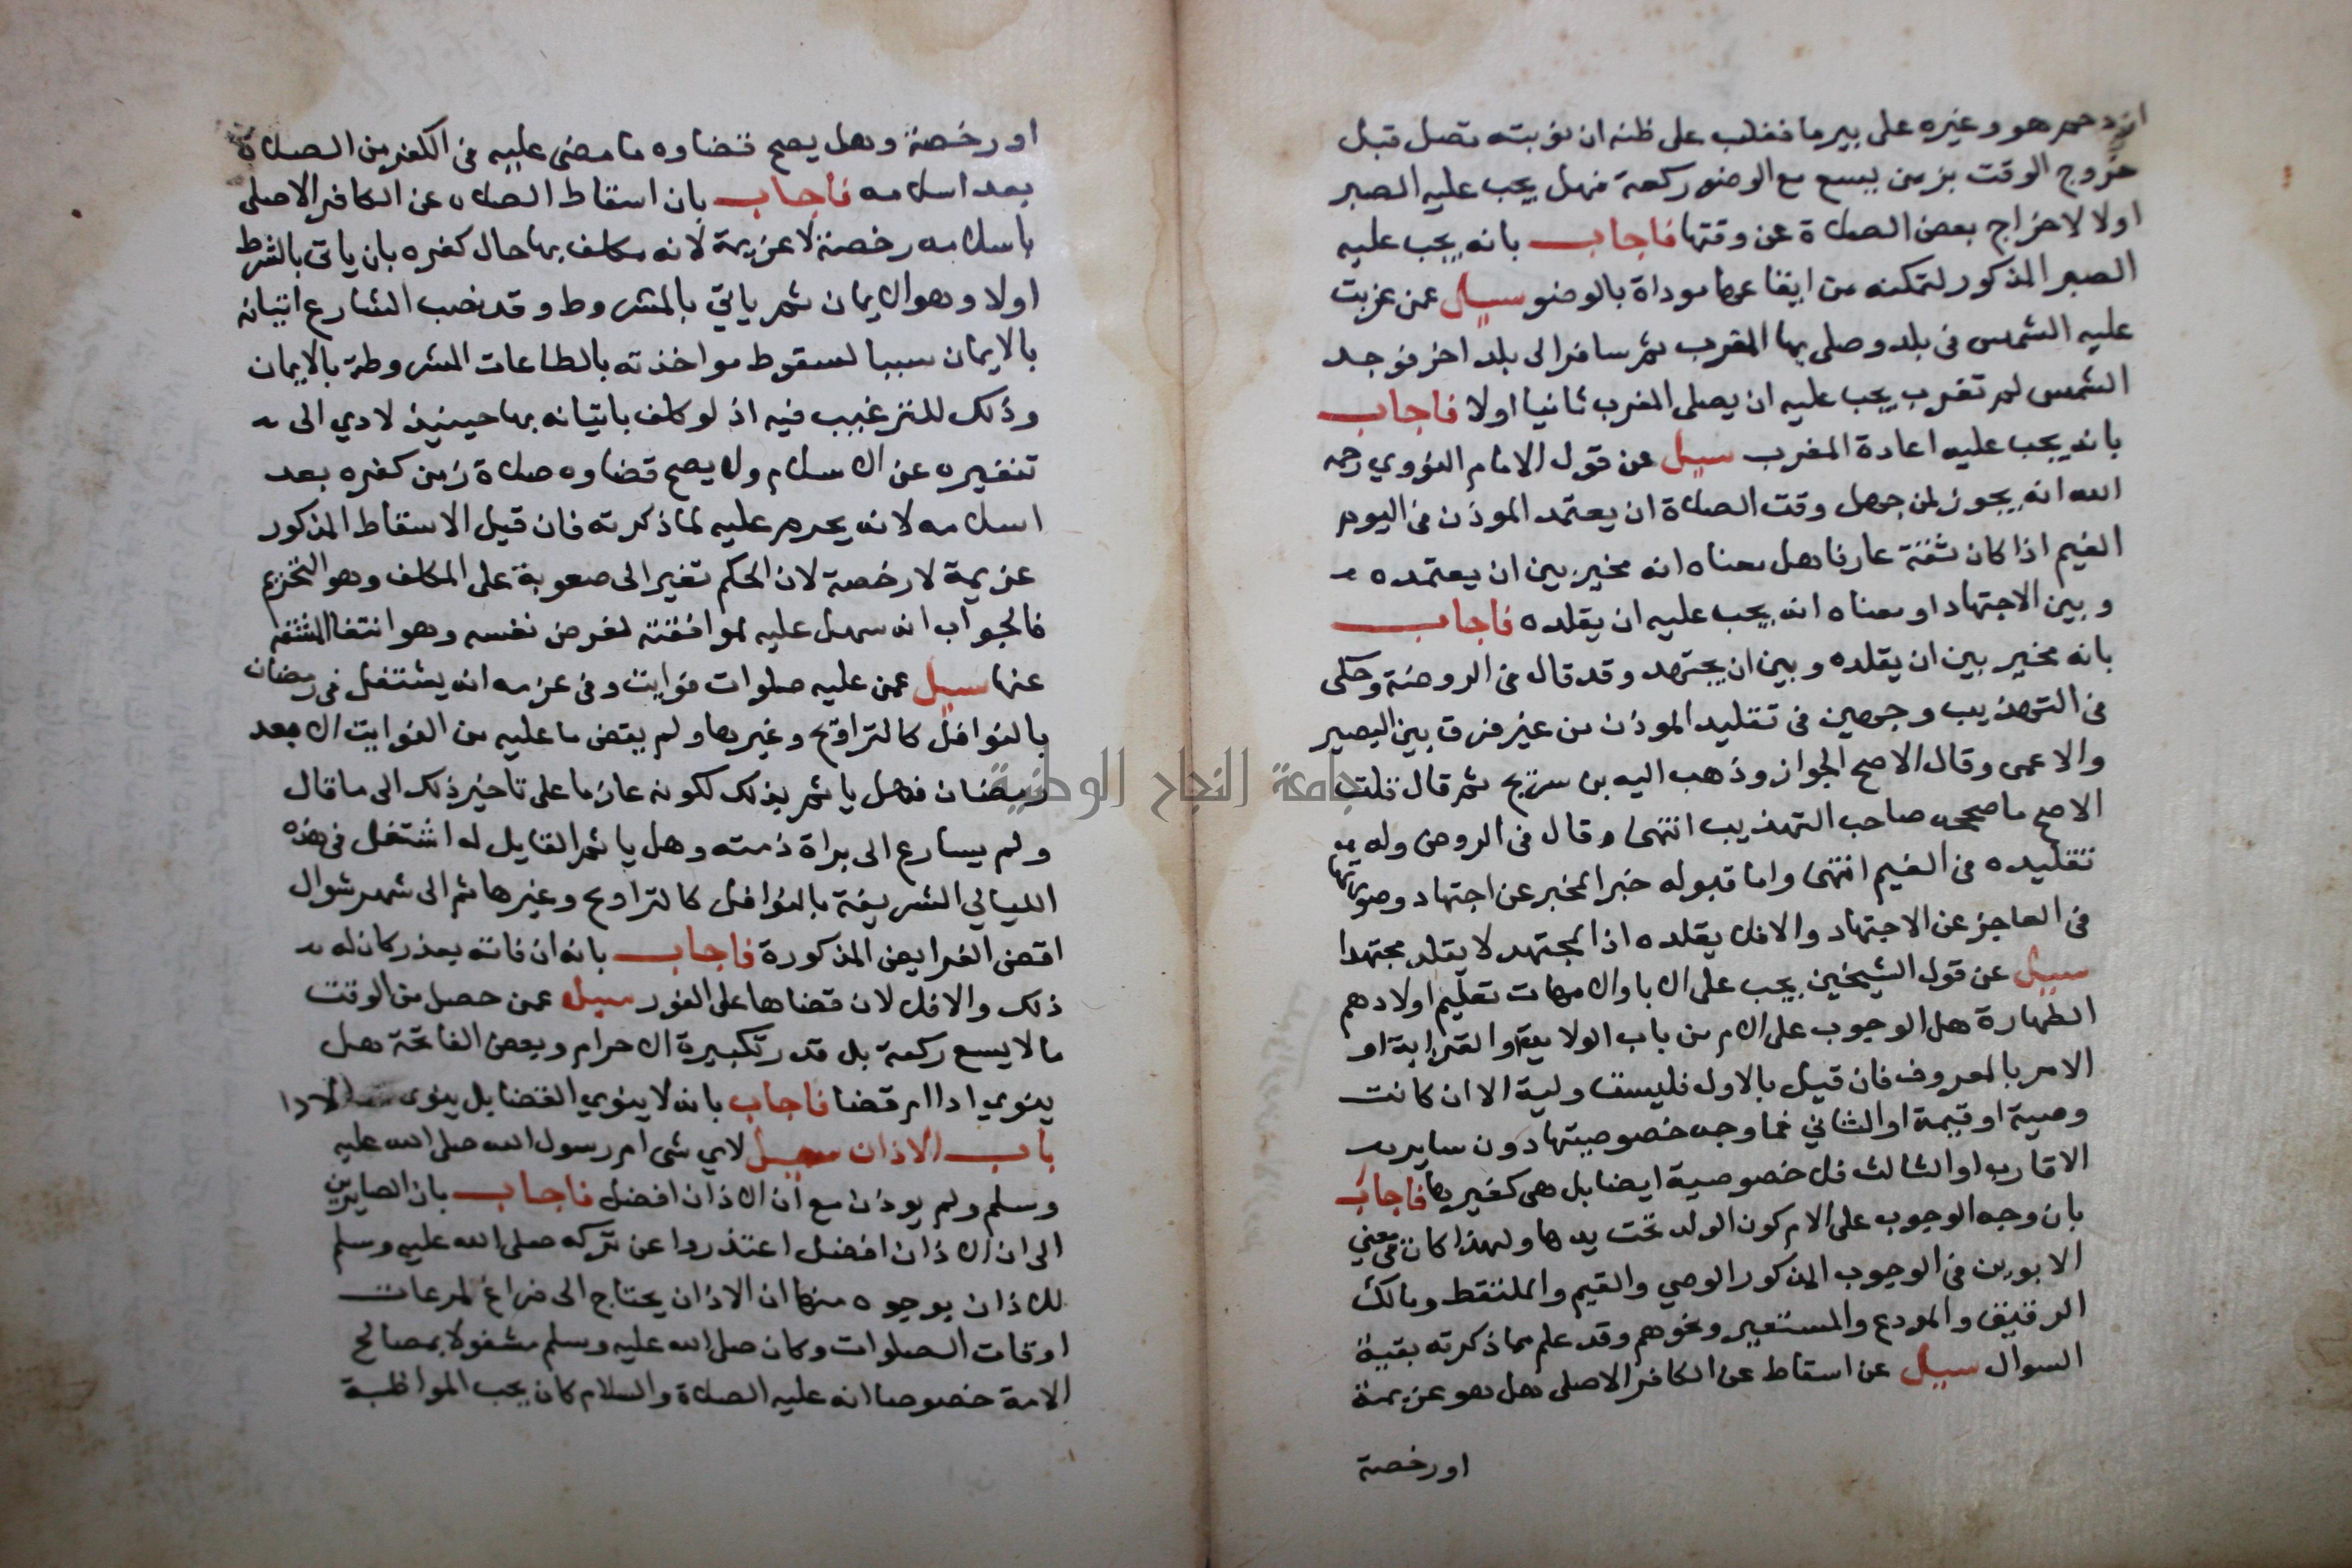 ازدحم هو وغيره على بير ما فغلب على ظنه ان نوبته تصل قبل
خروج الوقت بزمن يسع مع الوضو ركعة فهل يجب عليه الصبر
اولا لاخراج بعض الصلاة عن وقتها فاجاب بانه يجب عليه
الصبر المذكور لتمكنه من ايقاعها موداة بالوضو سيل عمن غربت
عليه الشمس في بلد وصلى بها المغرب ثم سافر الى بلد اخر فوجد
الشمس لم تغرب يجب عليه ان يصلى المغرب ثانيا اولا فاجاب
بانه يجب عليه اعادة المغرب سيل عن قول الامام النووي رحمه
الله انه يجوز لمن جهل وقت الصلاة ان يعتمد الموذن في اليوم
الغيم اذا كان ثقة عارفا هل معناه انه مخير بين ان يعتمده
وبين الاجتهاد او معناه انه يجب عليه ان يقلده فاجاب
بانه مخير بين ان يقلده وبين ان يجتهد وقد قال في الروضة وحكى
في التهذيب وجهين في تقليد الموذن من غير فرق بين البصير
والاعمى وقال الاصح الجواز وذهب اليه بن سريج ثم قال قلت
الاصح ما صححه صاحب التهذيب انتهى وقال في الروض وله
تقليده في الغيم انتهى واما قبوله خبر المخبر عن اجتهاد وصورتها
في العاجز عن الاجتهاد والافلا يقلده اذ المجتهد لا يقلد مجتهدا
سيل عن قول الشيخين يجب على الابا والامهات تعليم اولادهم
الطهارة هل الوجوب على الام من باب الولاية او القرابة او
الامر بالمعروف فان قيل بالاول فليست ولية الا ان كانت
وصية او قيمة او الثاني فما وجه خصوصيتها دون ساير
الاقارب او الثالث فلا خصوصية ايضا بل هى كغيرها فاجاب
بان وجه الوجوب على الام كون الولد تحت يدها ولهذا كان في معني
الابوين في الوجوب المذكور الوصي والقيم والملتقط ومالك
الرقيق والمودع والمستعير ونحوهم وقد علم مما ذكرته بقية
السوال سيل عن اسقاط عن الكافر الاصلى هل هو عزيمة
او رخصة
او رخصة وهل يصح قضاوه ما مضى عليه في الكفر من الصلاة
بعد اسلامه فاجاب بان اسقاط الصلاة عن الكافر الاصلى
باسلامه رخصة لا عزيمة لانه مكلف بها حال كفره بان ياتى بالشرط
اولا وهو الايمان ثم ياتي بالمشروط وقد نصب الشارع اتيانه
بالايمان سببا لسقوط مواخذته بالطاعات المشروطة بالايمان
وذلك للترغيب فيه اذ لو كلف باتيانه بها حينيذ لادي الى
تنفيره عن الاسلام ولا يصح قضاوه صلاة زمن كفره بعد
اسلامه لانه يحرم عليه لما ذكرته فان قيل الاسقاط المذكور
عزيمة لا رخصة لان الحكم تغير الى صعوبة على المكلف وهو التحريم
فالجواب انه سهل عليه لموافقته لغرض نفسه وهو انتفا المشقة
عنها سيل عمن عليه صلوات فوايت وفى عزمه انه يشتغل في رمضان
بالنوافل كالتراويح وغيرها ولم يقض ما عليه من الفوايت الا بعد
رمضان فهل ياثم بذلك لكونه عازما على تاخير ذلك الى ما قال
ولم يسارع الى براة ذمته وهل ياثم القايل له اشتغل في هذه
الليالي الشريفة بالنوافل كالتراويح وغيرها ثم الى شهر شوال
اقضى الفرايض المذكورة فاجاب بانه ان فاته بعذر كان له
ذلك والافلا لان قضاها على الفور سيل عمن حصل من الوقت
ما لا يسع ركعة بل قدر تكبيرة الاحرام وبعض الفاتحة هل
ينوي ادا ام قضا فاجاب بانه لا ينوي القضا بل ينوى الادا
باب الاذان سيل لاي شى ام رسول الله صلى الله عليه
وسلم ولم يوذن مع ان الاذان افضل فاجاب بان الصايرين
الى ان الاذان افضل اعتذروا عن تركه صلى الله عليه وسلم
للاذان بوجوه منها ان الاذان يحتاج الى فراغ لمرعات
اوقات الصلوات وكان صلى الله عليه وسلم مشغولا بمصالح
الامة خصوصا انه عليه الصلاة والسلام كان يحب المواظبة
جامعة النجاح الوطنية